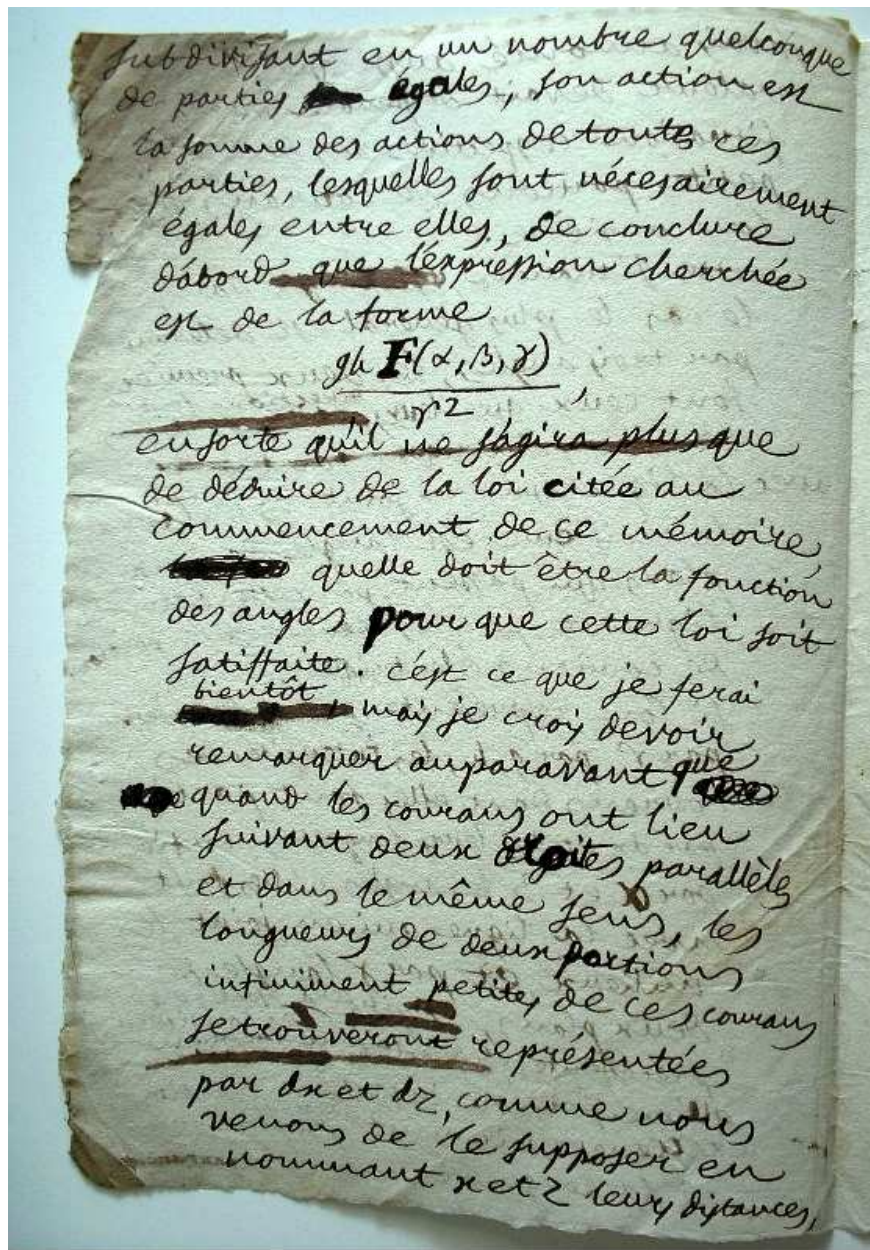 subdivisant en un nombre quelconque
de parties égales, son action est
la somme des actions de toutes ces
parties, lesquelles sont nécesairement
égales entre elles, de conclure
d'abord que l'éxpression cherchée
est de la forme
gh F(α, β, γ)
r2 ,
ensorte qu'il ne s'agira plus que
de déduire de la loi citée au
commencement de ce mémoire,
quelle doit être la fonction
des angles pour que cette loi soit
satisfaite. c'est ce que je ferai
bientôt
, mais je crois devoir
remarquer auparavant que
quand les courans ont lieu
suivant deux droites parallèles
et dans le même sens, les
longueurs de deux portions
infiniment petites de ces courans
se trouveront représentées
par dx et dz, comme nous
venons de le supposer en
nommant x et z leurs distances,